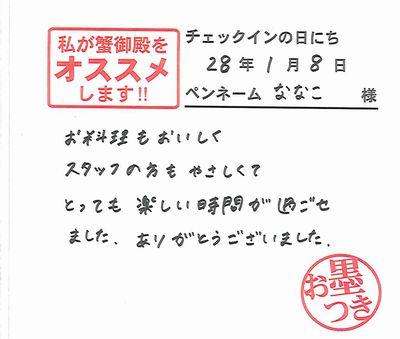 私が蟹御殿を
オススメ
します!!
チェックインの日にち
28年1月8日
ペンネーム ななこ 様
お料理もおいしく
スタッフの方も やさしくて
とっても 楽しい時間が過ごせ
ました. ありがとうございました.
お墨つき